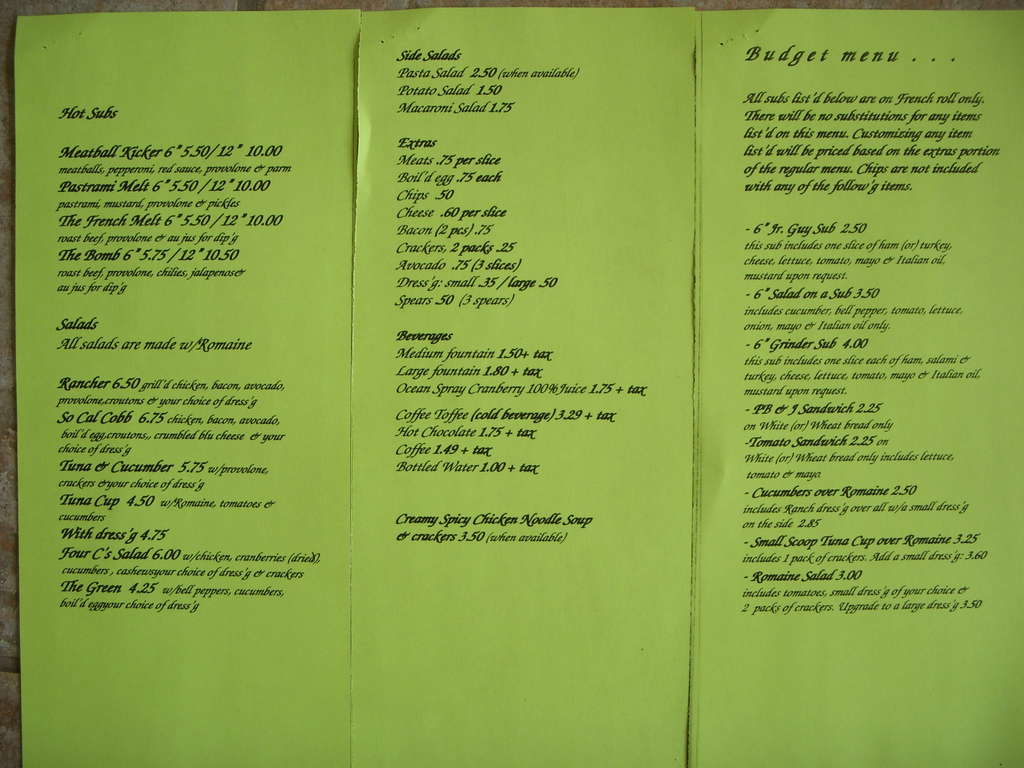 Hot Subs
Meatball Kicker 6" 5.50/ 12" 10.00
meatballs, pepperoni, red sauce, provolone & parm
Pastrami Melt 6" 5.50 / 12" 10.00
pastrami, mustard, provolone & pickles
The French Melt 6" 5.50 / 12" 10.00
roast beef, provolone & au jus for dip'g
The Bomb 6" 5.75 / 12" 10.50
roast beef, provolone, chilies, jalapenose&
au jus for dip'g
Salads
All salads are made w/Romaine
Rancher 6.50 grill'd chicken, bacon, avocado,
provolone,croutons & your choice of dress'g
So Cal Cobb 6.75 chicken, bacon, avocado,
boil'd egg,croutons,, crumbled blu cheese & your
choice of dress'g
Tuna & Cucumber 5.75 w/provolone,
crackers &your choice of dress'g
Tuna Cup 4.50 w/Romaine, tomatoes &
cucumbers
With dress'g 4.75
Four C's Salad 6.00 w/chicken, cranberries (dried),
cucumbers , cashewsyour choice of dress'g & crackers
The Green 4.25 w/bell peppers, cucumbers,
boil'd eggyour choice of dress'g
Side Salads
Pasta Salad 2.50 (when available)
Potato Salad 1.50
Macaroni Salad 1.75
Extras
Meats .75 per slice
Boil'd egg .75 each
Chips .50
Cheese .60 per slice
Bacon (2 pcs) .75
Crackers, 2 packs .25
Avocado .75 (3 slices)
Dress'g: small .35 / large .50
Spears .50 (3 spears)
Beverages
Medium fountain 1.50+ tax
Large fountain 1.80 + tax
Ocean Spray Cranberry 100% Juice 1.75 + tax
Coffee Toffee (cold beverage) 3.29 + tax
Hot Chocolate 1.75 + tax
Coffee 1.49 + tax
Bottled Water 1.00 + tax
Creamy Spicy Chicken Noodle Soup
& crackers 3.50 (when available)
Budget menu . . .
All subs list'd below are on French roll only.
There will be no substitutions for any items
list'd on this menu. Customizing any item
list'd will be priced based on the extras portion
of the regular menu. Chips are not included
with any of the follow'g items.
- 6" Jr. Guy Sub 2.50
this sub includes one slice of ham (or) turkey,
cheese, lettuce, tomato, mayo & Italian oil,
mustard upon request.
- 6" Salad on a Sub 3.50
includes cucumber, bell pepper, tomato, lettuce,
onion, mayo & Italian oil only.
- 6" Grinder Sub 4.00
this sub includes one slice each of ham, salami &
turkey, cheese, lettuce, tomato, mayo & Italian oil,
mustard upon request.
- PB & J Sandwich 2.25
on White (or) Wheat bread only
-Tomato Sandwich 2.25 on
White (or) Wheat bread only includes lettuce,
tomato & mayo.
- Cucumbers over Romaine 2.50
includes Ranch dress'g over all w/a small dress'g
on the side 2.85
- Small Scoop Tuna Cup over Romaine 3.25
includes 1 pack of crackers. Add a small dress'g: 3.60
- Romaine Salad 3.00
includes tomatoes, small dress'g of your choice &
2 packs of crackers. Upgrade to a large dress'g 3.50